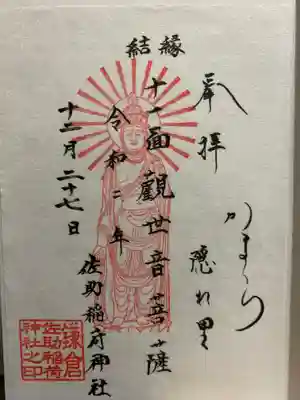 結縁
奉拝
かまくら
隠れ里
十一面観世音菩薩
令和二年
十二月二十七日
佐助稲荷神社
鎌倉
佐助稲荷
神社之印